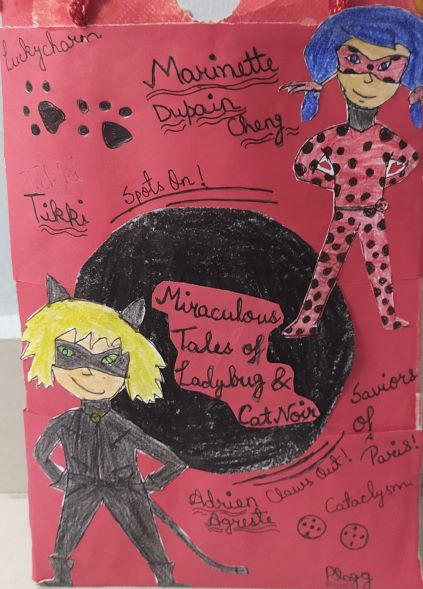 Luckycharm
Marinette
Dupain
Cheng
Tikki
Tikki
Spots On!
Miraculous
Tales of
Ladybug &
Cat Noir
Saviors
Of
Paris!
Claws Out!
Adrien
Agreste
Cataclysm
Plagg